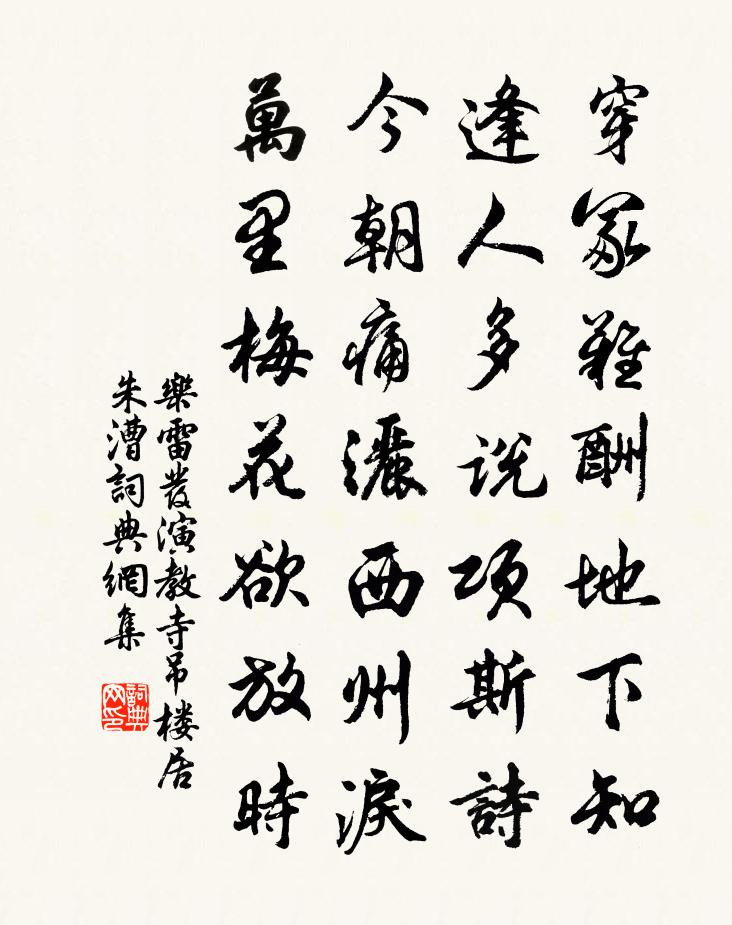 穿冢難酬地下知
逢人多說項斯詩
今朝痛灑西州淚
萬里梅花欲放時
樂雷發演教寺吊楼居
朱漕詞典網集
詞典网印